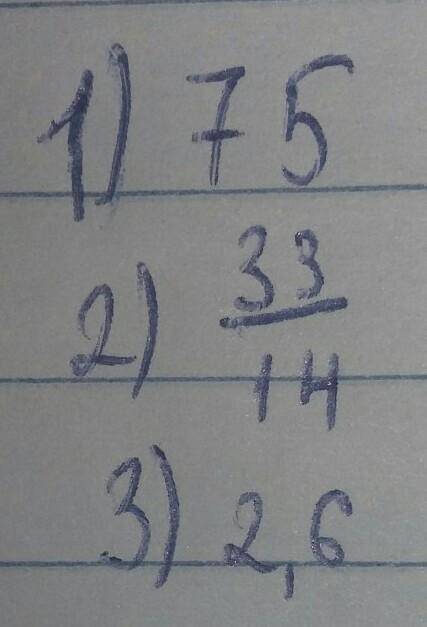 1) 75
2) 33/14
3) 2,6